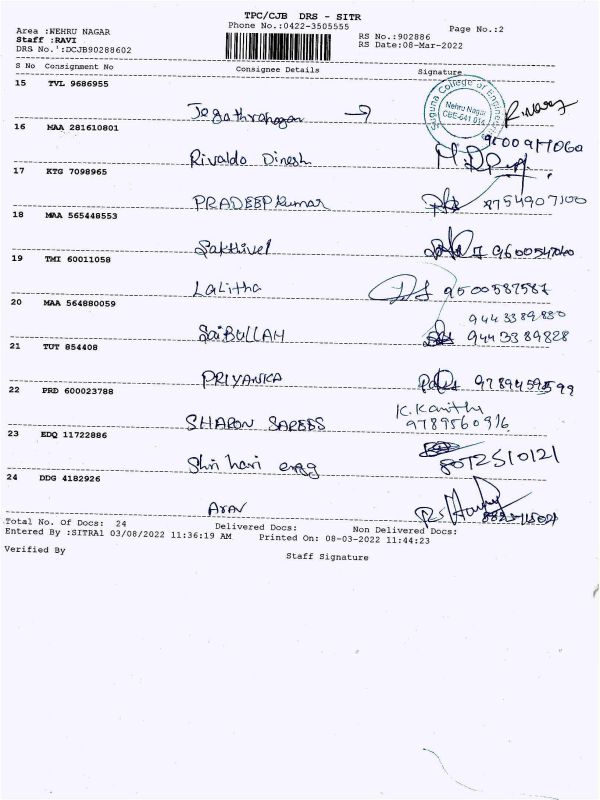 TPC/CJB DRS - SITR
Phone No.:0422-3505555
Page No.:2
Area :NEHRU NAGAR
Staff :RAVI
DRS No.':DCJB90288602
RS No.:902886
RS Date:08-Mar-2022
S No Consignment No Consignee Details Signature
15 TVL 9686955
Suguna College of Engineering
Nehru Nagar
CBE-641 014
16 MAA 281610801
Rivaldo Dinesh
17 KTG 7098965
PRADEEP Kumar
18 MAA 565448553
Sakthivel
19 TMI 60011058
Lalitha 9500587587
20 MAA 564880059
9443389830
SaiBULLAH 9443389828
21 TUT 854408
PRIYANKA
22 PRD 600023788
K.Kavitha
SHARON SAREES 9789560916
23 EDQ 11722886
Shri hari engg
24 DDG 4182926
Arav
Total No. of Docs: 24 Delivered Docs: Non Delivered Docs:
Entered By :SITRA1 03/08/2022 11:36:19 AM Printed On: 08-03-2022 11:44:23
Verified By
Staff Signature